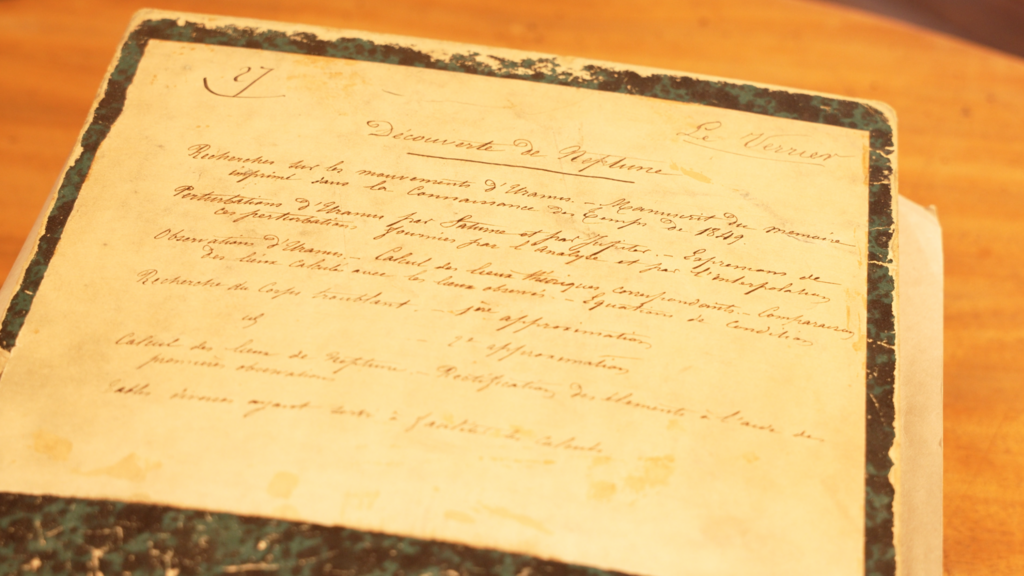 Le Verrier
Découverte de Neptune
Recherches sur les mouvements d'Uranus. - Manuscrit du mémoire
imprimé dans la Connaissance des Temps de 1849
Perturbations d'Uranus par Saturne et par Jupiter. - Expressions de
ces perturbations fournies par l'Analyse et par l'interpolation
Observations d'Uranus. - Calcul des lieux théoriques correspondants. - Comparaison
des lieux calculés avec les lieux observés. - Equations de Condition
Recherche du Corps troublant. - 1ère approximation
- 2e approximation
Calcul des lieux de Neptune. - Rectification des éléments à l'aide des
premières observations
Tables diverses ayant servi à faciliter les calculs